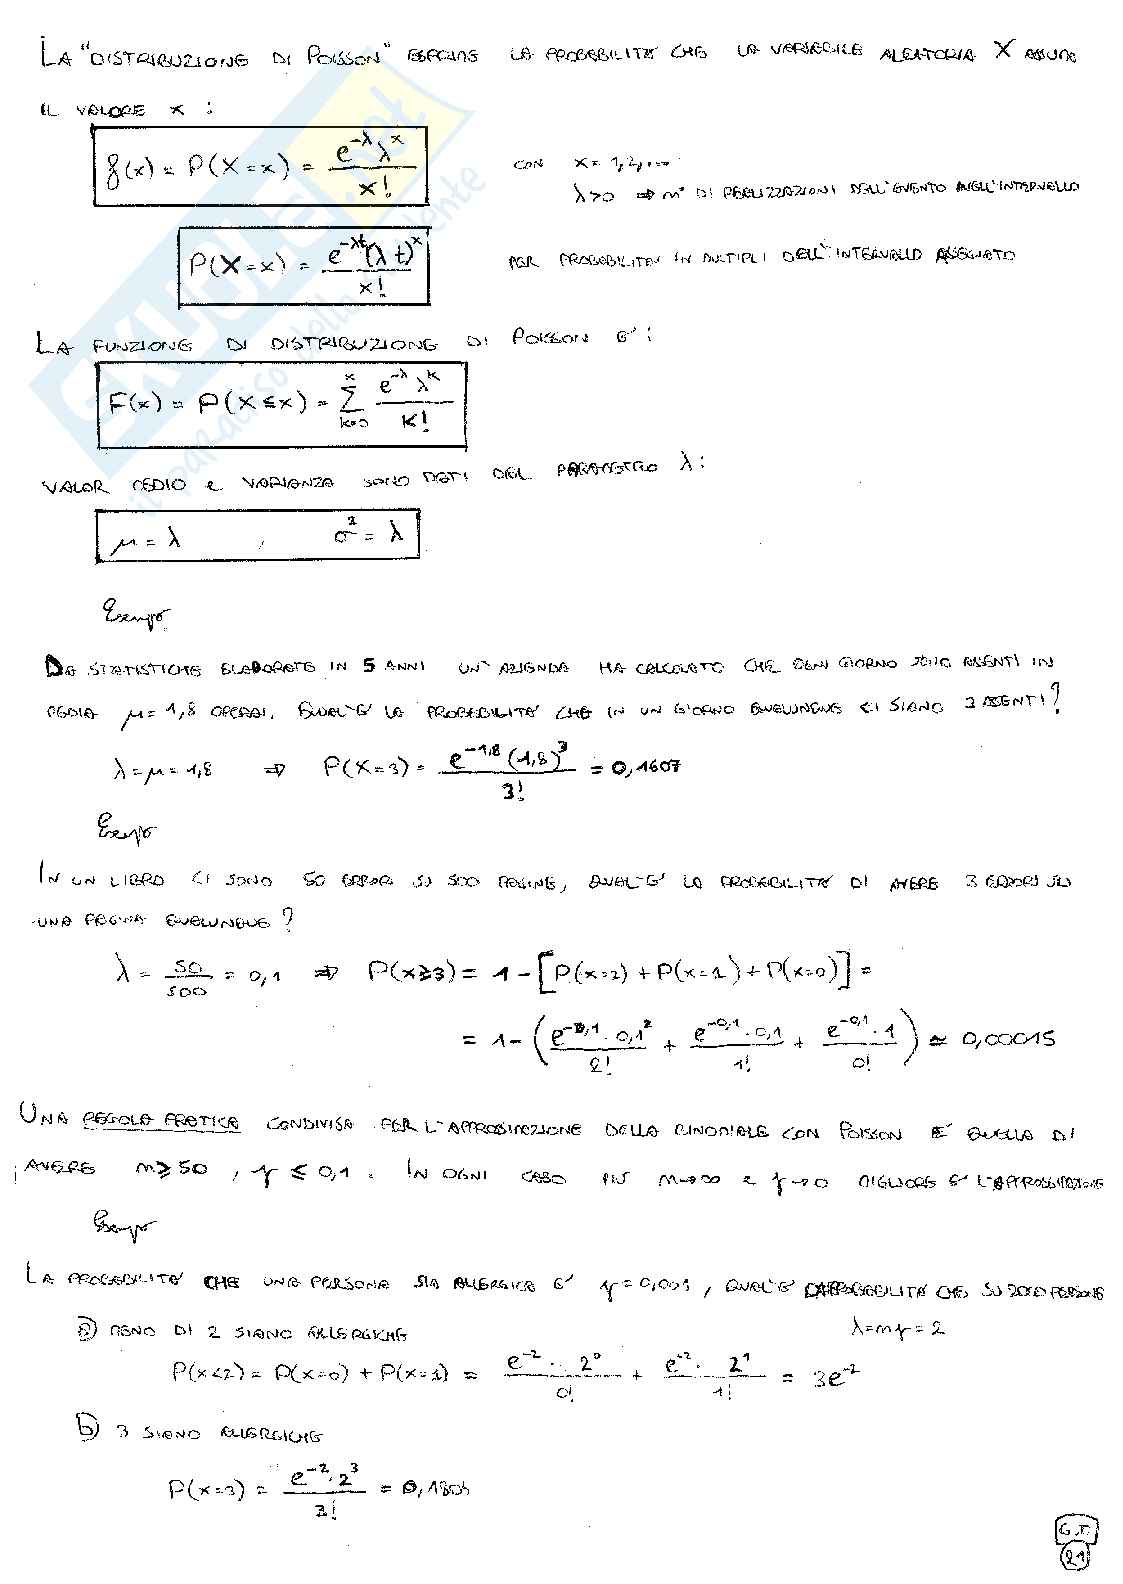 La "distribuzione di Poisson" esprime la probabilità che la variabile aleatoria X assuma
il valore x :
f(x) = P(X=x) = e^-λ λ^x / x!
con x = 1,2,....
λ>0 ⇒ n° di realizzazioni dell'evento nell'intervallo
P(X=x) = e^-λt (λt)^x / x!
per probabilità in multipli dell'intervallo assegnato
La funzione di distribuzione di Poisson è :
F(x) = P(X≤x) = Σ_{k=0}^{x} e^-λ λ^k / k!
valor medio e varianza sono dati del parametro λ :
μ = λ , σ² = λ
Esempio
Da statistiche elaborate in 5 anni un'azienda ha calcolato che ogni giorno sono assenti in
media μ = 1,8 operai. Qual'è la probabilità che in un giorno qualunque ci siano 3 assenti?
λ = μ = 1,8 ⇒ P(X=3) = e^-1,8 (1,8)^3 / 3! = 0,1607
Esempio
In un libro ci sono 50 errori su 500 pagine, qual'è la probabilità di avere 3 errori su
una pagina qualunque?
λ = 50/500 = 0,1 ⇒ P(x≥3) = 1 - [P(x=2) + P(x=1) + P(x=0)] =
= 1 - (e^-0,1 · 0,1² / 2! + e^-0,1 · 0,1 / 1! + e^-0,1 · 1 / 0!) ≃ 0,00015
Una regola pratica condivisa per l'approssimazione della binomiale con Poisson è quella di
avere n ≥ 50 , p ≤ 0,1 . In ogni caso più n→∞ e p→0 migliore è l'approssimazione
Esempio
La probabilità che una persona sia allergica è p = 0,001 , qual'è la probabilità che su 2000 persone
a) meno di 2 siano allergiche
λ = np = 2
P(x<2) = P(x=0) + P(x=1) = e^-2 · 2^0 / 0! + e^-2 · 2^1 / 1! = 3e^-2
b) 3 siano allergiche
P(x=3) = e^-2 · 2^3 / 3! = 0,1804
G.T.
21
SKUOLA.net
il paradiso dello studente